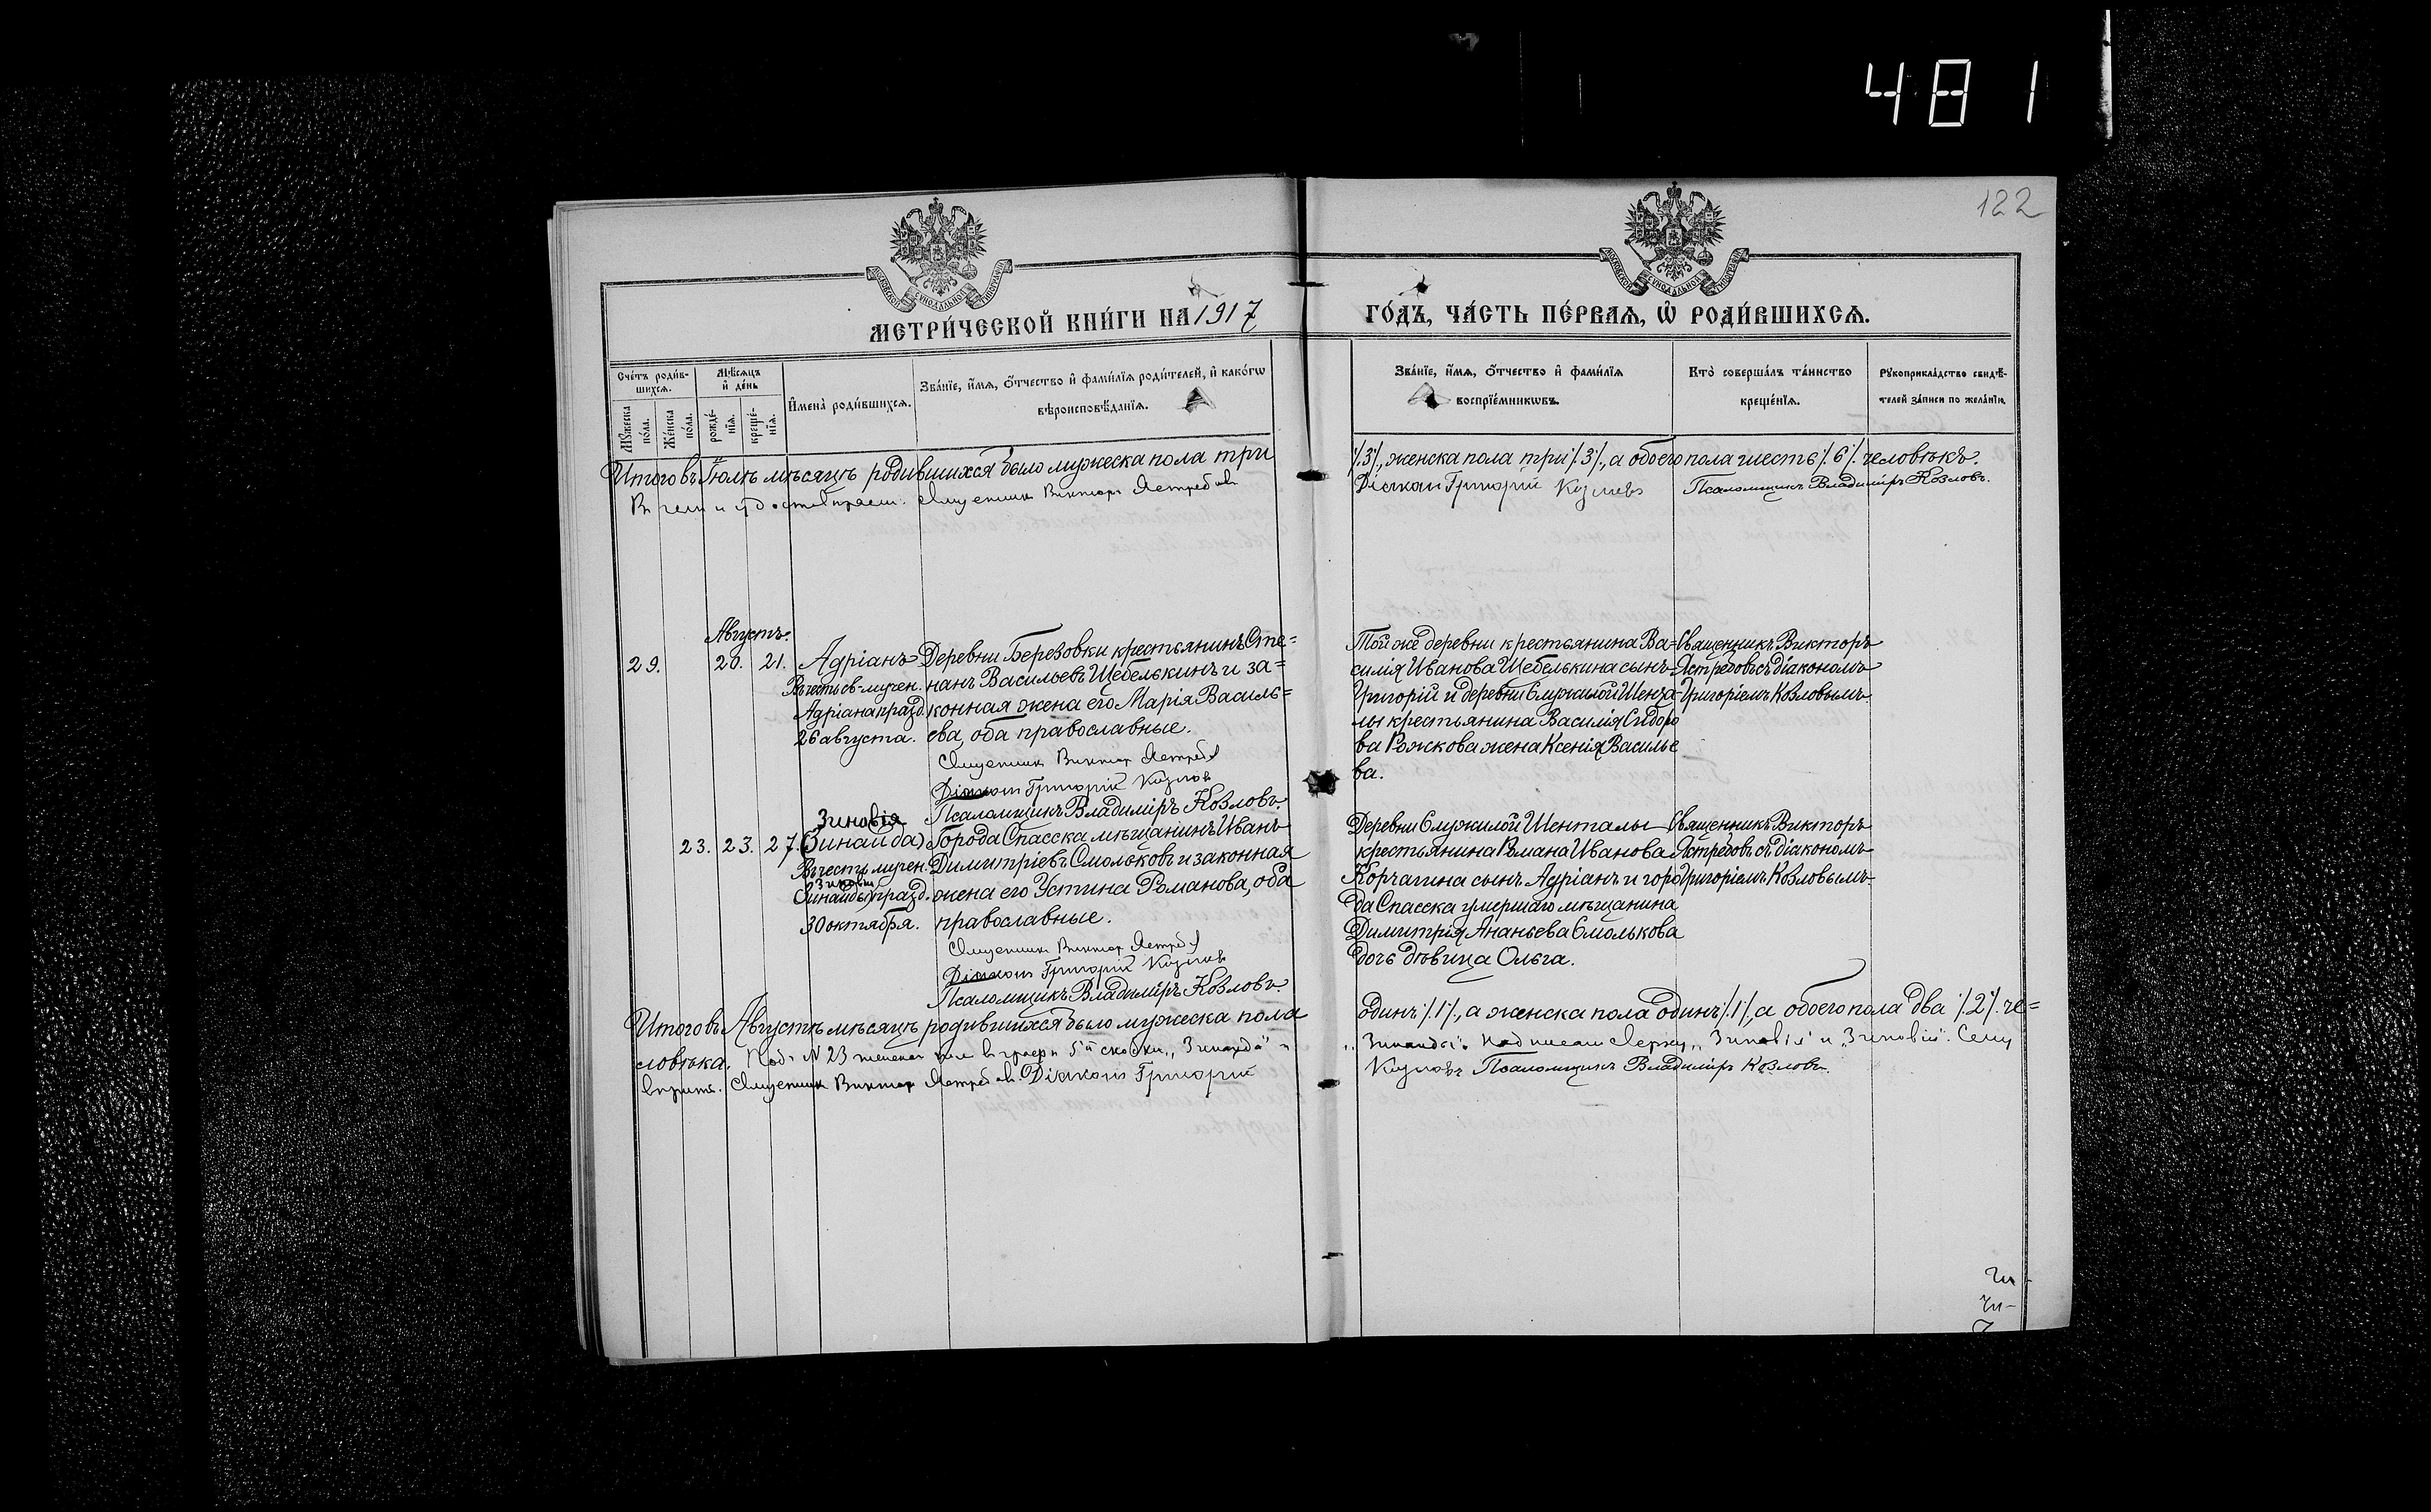 481
122
МОСКОВСКОЙ СѴНОДАЛЬНОЙ ТИПОГРАФІИ
МОСКОВСКОЙ СѴНОДАЛЬНОЙ ТИПОГРАФІИ
МЕТРИ́ЧЕСКОЙ КНИ́ГИ НА 1917 ГО́ДЪ, ЧА́СТЬ ПЕ́РВАѦ, Ѡ҆ РОДИ́ВШИХСѦ.
Сче́тъ роди́в-
шихсѧ.
Мꙋ́жеска
по́ла.
Же́нска
по́ла.
Мѣ́сѧцъ
и҆ де́нь
рожде́-
нїѧ.
креще́-
нїѧ.
И҆мена̀ роди́вшихсѧ.
Зва́нїе, и҆́мѧ, ѻ҆́тчество и҆ фами́лїѧ роди́телей, и҆ како́гѡ
вѣроисповѣ́данїѧ.
Зва́нїе, и҆́мѧ, ѻ҆́тчество и҆ фами́лїѧ
воспрїе́мникѡвъ.
Кто̀ соверша́лъ та́инство
креще́нїѧ.
Рꙋкоприкла́дство свидѣ́-
телей за́писи по жела́нїю.
Итого въ Іюлѣ мѣсяцѣ родившихся было мужеска пола три
/.3/., женска пола три /.3/., а обоего пола шесть /.6/. человѣкъ.
Священникъ Викторъ Ястребовъ
Діаконъ Григорій Козловъ Псаломщикъ Владиміръ Козловъ.
Августъ.
29. 20. 21.
Адріанъ
Въ честь св. мучен.
Адріана празд.
26 августа.
Деревни Березовки крестьянинъ Сте=
нанъ Васильевъ Щебелькинъ и за=
конная жена его Марія Василь=
ева, оба православные.
Священникъ Викторъ Ястребовъ
Діаконъ Григорій Козловъ
Псаломщикъ Владиміръ Козловъ.
Той же деревни крестьянина Ва=
силія Иванова Щебелькина сынъ
Григорій и деревни Служилой Шента
лы крестьянина Василія Сидоро
ва Рожкова жена Ксенія Василье
ва.
Священникъ Викторъ
Ястребовъ съ діакономъ
Григоріемъ Козловымъ.
23. 23. 27.
Зиновія
(Зинаида)
Въ честь мучен.
Зиновіи
(Зинаиды) празд.
30 октября.
Города Спасска мѣщанинъ Иванъ
Димитріевъ Смольковъ и законная
жена его Устина Романова, оба
православные.
Священникъ Викторъ Ястребовъ
Діаконъ Григорій Козловъ
Псаломщикъ Владиміръ Козловъ.
Деревни Служилой Шенталы
крестьянина Романа Иванова
Корчагина сынъ Адріанъ и горо
да Спасска умершаго мѣщанина
Димитрія Ананьева Смолькова
дочь дѣвица Ольга.
Священникъ Викторъ
Ястребовъ съ діакономъ
Григоріемъ Козловымъ.
Итого въ Августѣ мѣсяцѣ родившихся было мужеска пола
одинъ /.1/., а женска пола одинъ /.1/., а обоего пола два /.2/. че=
ловѣка. Подъ № 23 женска пола въ графѣ 5й скобки „Зинаида" и
„Зинаиды". Надписано сверху „Зиновія" и „Зиновіи". Сему
вѣрить. Священникъ Викторъ Ястребовъ. Діаконъ Григорій
Козловъ Псаломщикъ Владиміръ Козловъ.